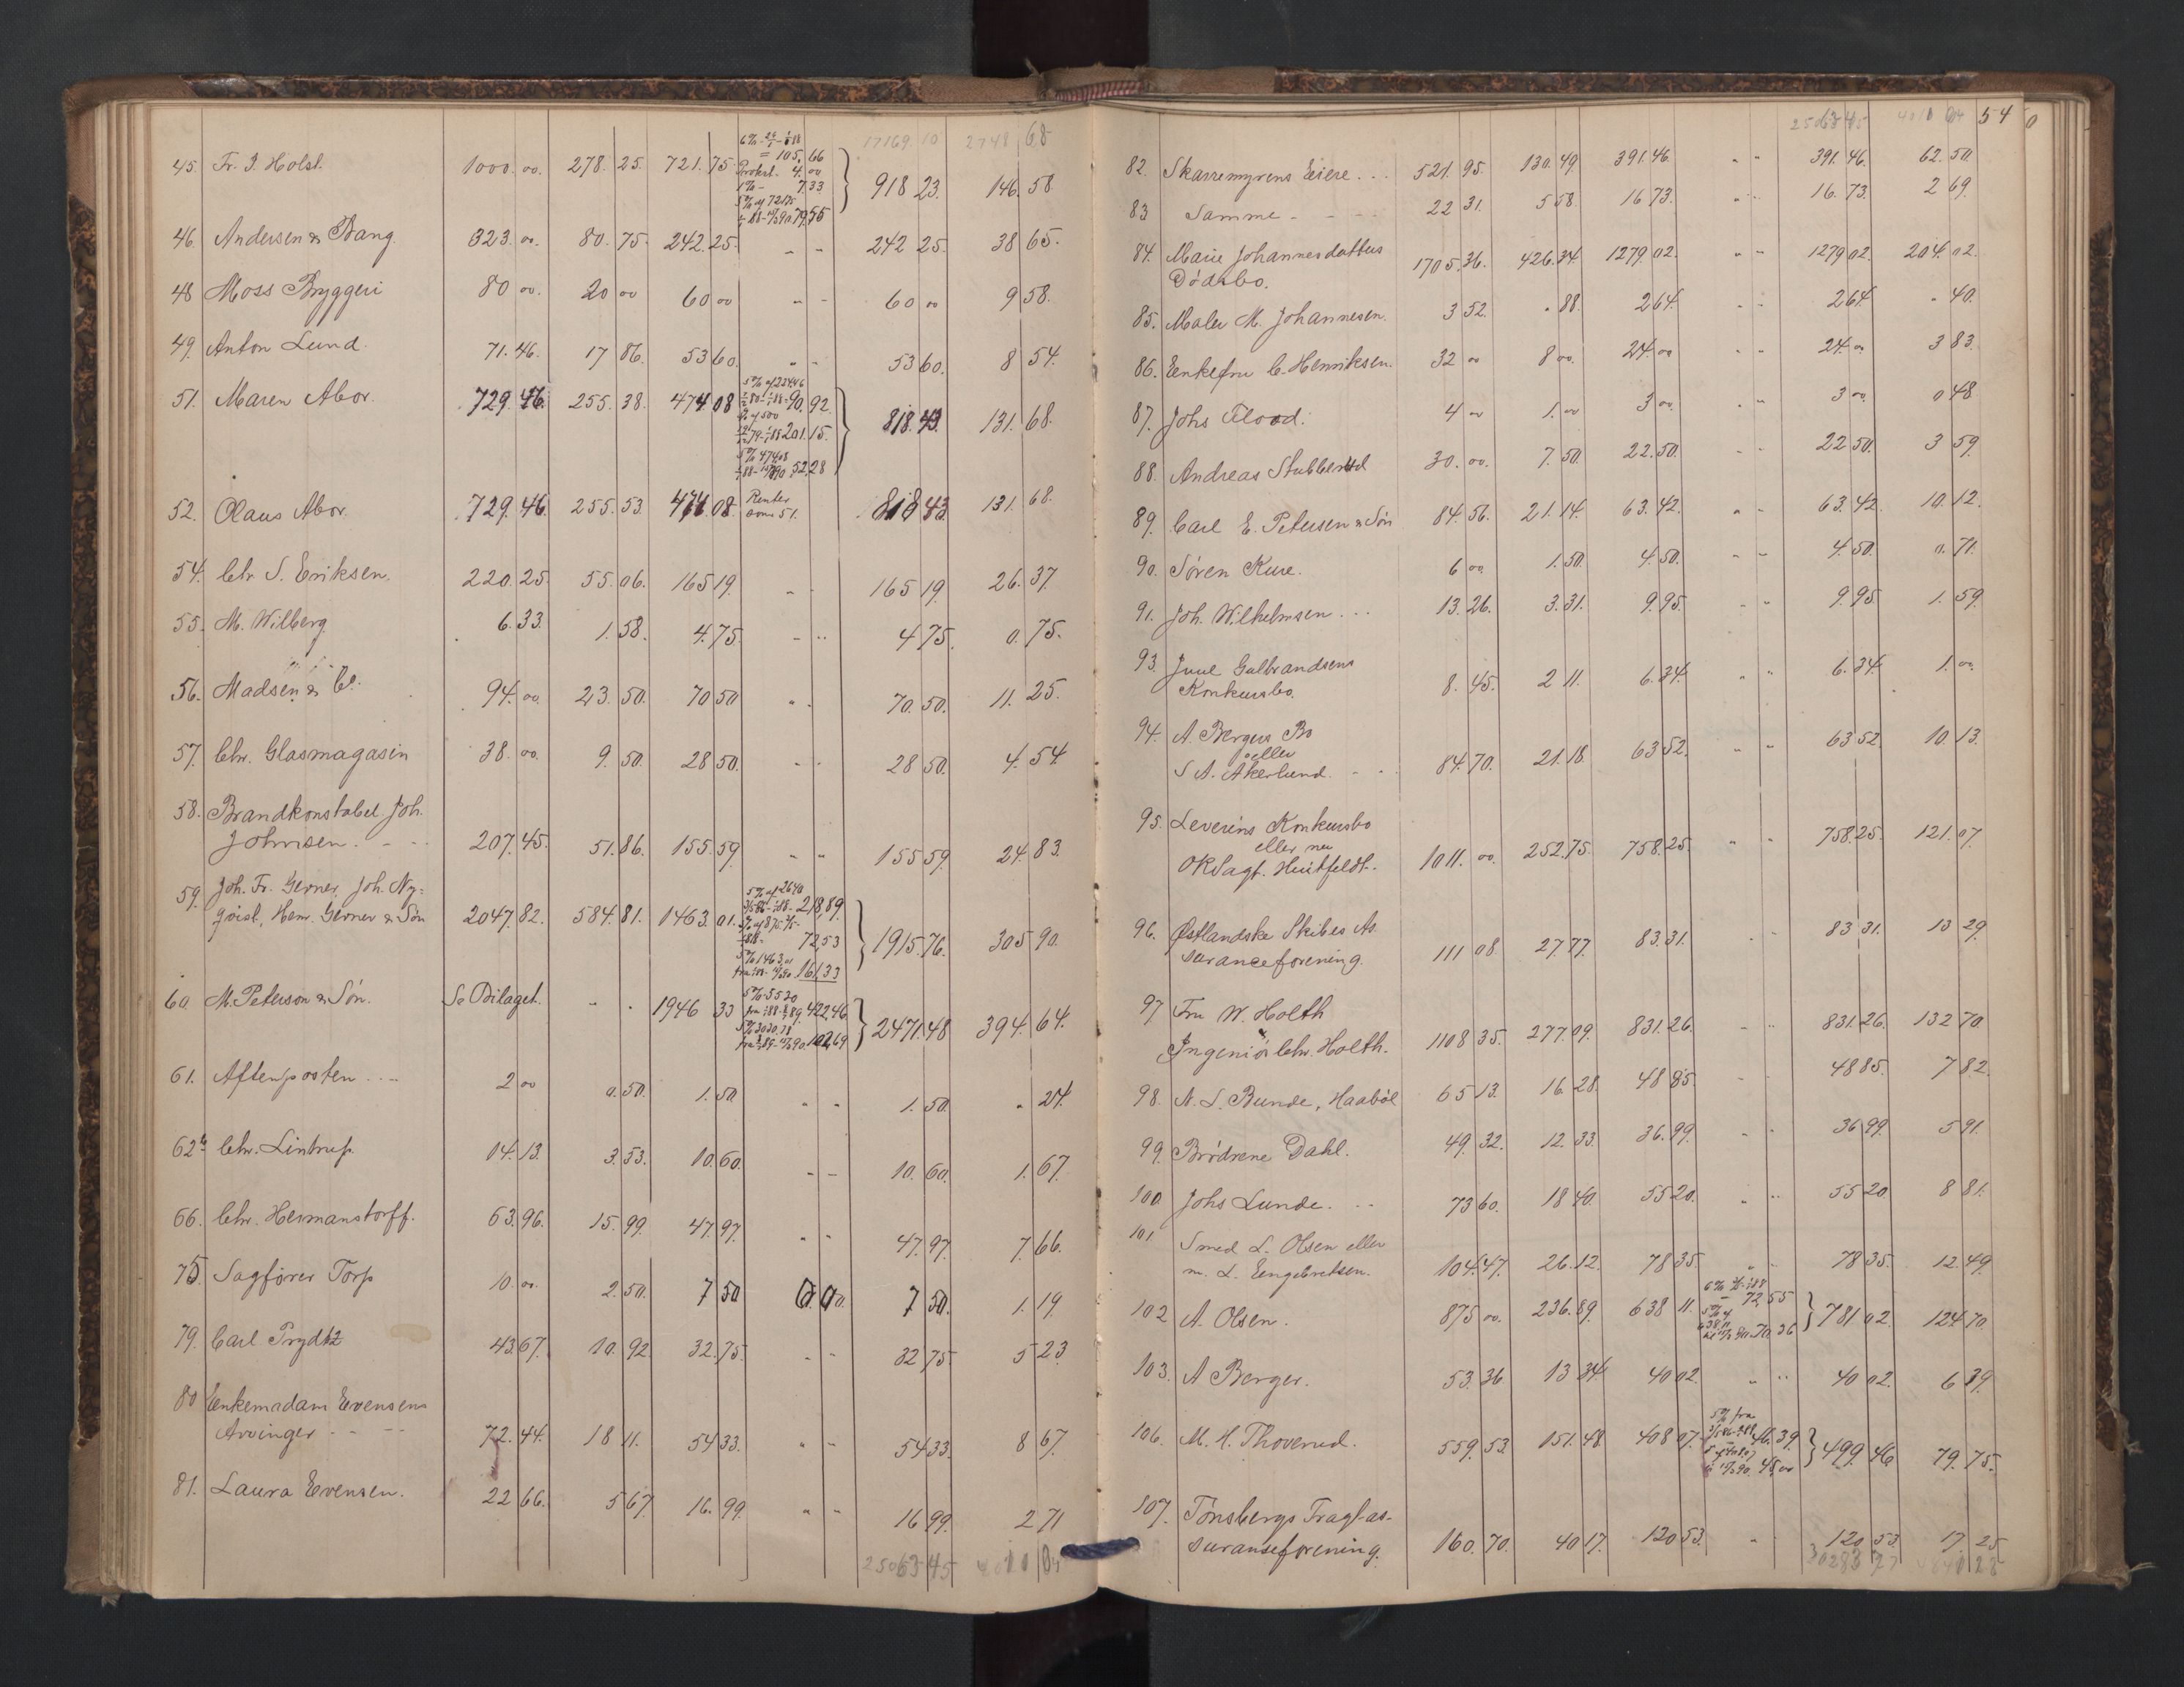 17169 10 2748 68
45. Fr. J. Holst. 1000.00. 278.25. 721.75 918 23. 146.58
6% = 105,66
4.00
1% - 7.33
5% af 72175
79,55
46. Andersen & Bang. 323.00. 80.75. 242.25. - - 242 25. 38 65.
48 Moss Bryggeri 80 00. 20 00 60 00 - - 60 00 9 58.
49. Anton Lund. 71.46. 17 86. 53 60. „ - 53 60. 8 54.
51. Maren Abor. 729.46. 255.38. 474 08 818.43. 131.68.
90,92
af 500
201.15.
5% 474,08
52,28
52. Olaus Abor. 729.46. 255.53. 474.08. Renter som 51. 818 43 131 68.
54. Chr S. Eriksen. 220.25. 55.06. 165 19. - - 165 19. 26.37.
55. M. Wilberg. 6.33. 1.58. 4.75. - „ 4 75. 0.75.
56. Madsen & Co. 94.00. 23.50. 70 50 „ - 70.50. 11.25.
57. Chr. Glasmagasin 38.00. 9.50. 28 50. - - 28 50. 4.54
58. Brandkonstabel Joh.
Johnsen. - - 207.45. 51.86. 155.59 „ „ 155 59. 24.83.
59. Joh. Fr. Gerner, Joh. Ny=
qvist, Henr. Gerner & Søn 2047.82. 584.81. 1463.01. 1915.76. 305 90.
5% af 2640
218,89
72,53
5% 1463,01
161,33
60. M. Peterson & Søn. Se Bilaget. - . 1946 33 2471.48 394.64.
5% 5520
422,46
102,69
61. Aftenposten ... 2 00 0.50. 1.50 „ - 1.50. „ 24.
62b Chr. Lintrup. 14.13. 3.53. 10.60. - - 10.60. 1.67.
66. Chr. Hermanstorff. 63.96. 15.99. 47.97. „ „ 47.97. 7.66.
75. Sagfører Torp 10.00. 2.50. 7 50 0.00. 7 50. 1.19
79. Carl Prydtz 43 67. 10.92. 32.75. - - 32 75. 5 23
80 Enkemadam Evensens
Arvinger - - - 72.44. 18 11. 54 33. „ - 54 33. 8 67.
81. Laura Evensen. 22 66. 5 67. 16.99. „ - 16 99. 2 71
25063 45 4010 04
25063 45 4010 04 54
82. Skarremyrens Eiere... 521.95. 130.49. 391.46. „ - 391.46. 62.50.
83 Samme - - - - 22 31. 5 58. 16 73. „ - 16.73. 2 69.
84. Marie Johannesdatters
Dødsbo. 1705.36. 426.34. 1279.02. „ - 1279 02. 204.02.
85. Maler M. Johannesen. 3 52. „ 88. 2 64. - - 2 64. „ 40.
86. Enkefru C. Henriksen. 32 00 8 00. 24.00 - - 24.00 3 83.
87. Johs Flood. 4 00 1.00 3 00. - - 3 00. 0 48
88. Andreas Stubberud 30.00. 7.50. 22.50. - - 22 50. 3 59.
89. Carl E. Petersen & Søn 84.56. 21.14. 63.42. „ - 63.42. 10.12.
90. Søren Kure. 6 00. 1.50. 4.50. - - 4 50. 0.71.
91. Joh. Wilhelmsen ... 13.26. 3.31. 9.95. - „ 9.95. 1.59.
93. Juul Gulbrandsens
Konkursbo. 8.45. 2 11. 6.34. „ „ 6.34. 1.00.
94. A. Bergers Bo
eller
S A. Akerlund. - - 84.70. 21.18. 63 52. „ „ 63 52 10.13.
95. Leverins Konkursbo
eller nu
ORSagf. Huitfeldt. 1011.00. 252.75. 758.25. „ „ 758.25. 121.07.
96. Østlandske Skibes As
suranceforening. 111 08. 27.77. 83.31. - - 83 31. 13 29.
97 Fru W. Holth
Ingeniør Chr. Holth. 1108 35. 277.09. 831.26. - „ 831.26. 132 70.
98. N. S. Bunde, Haabøl 65 13. 16.28. 48 85. - - 48 85. 7 82.
99. Brødrene Dahl. 49.32. 12.33. 36.99. - - 36 99. 5 91.
100. Johs Lunde. - - 73 60. 18 40. 55 20. „ „ 55 20. 8 81.
101 Smed L. Olsen eller
m. L. Engebretsen. 104.47. 26.12. 78 35. „ - 78 35. 12.49.
102 A. Olsen. 875 00. 236.89. 638 11. 781 02. 124 70.
72,55
5% af
638,11
70.36
103. A Berger. 53.36 13 34. 40 02. „ „ 40 02. 6 39.
106. M. H. Thoverud. 559.53. 151.48. 408 07. 499 46 79.75.
5% fra
46.39
45,00
107. Tønsbergs Fragtas-
suranseforening. 160.70. 40 17. 120 53. - - 120.53. 17.25
30283 27 4840 28